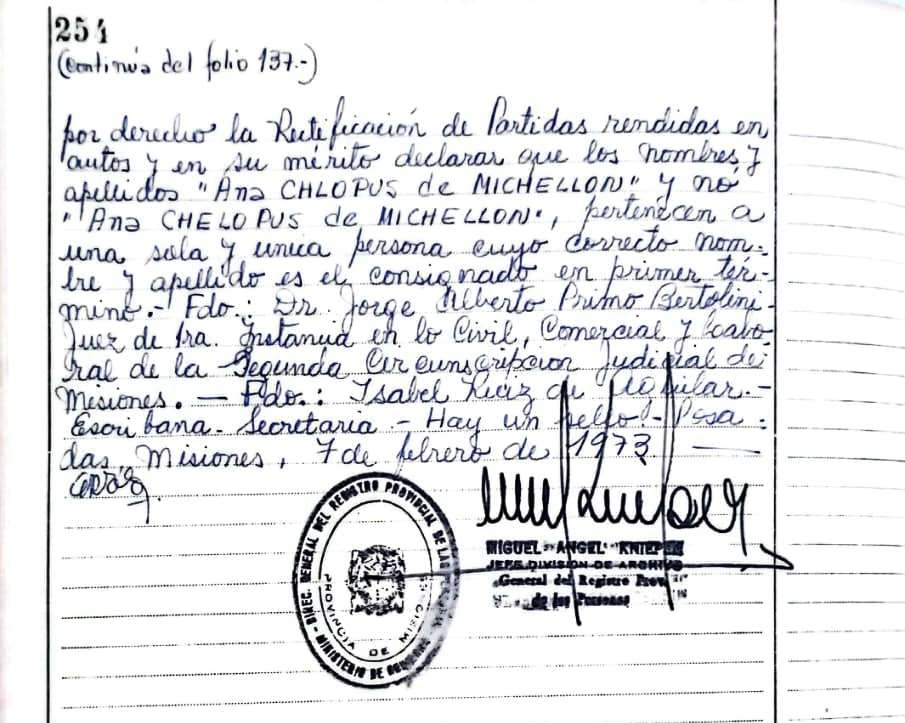 254
(Continúa del folio 137.-)
por derecho la Rectificación de Partidas rendidas en
autos y en su mérito declarar que los nombres y
apellidos "Ana CHLOPUS de MICHELLON" y nó
"Ana CHELOPUS de MICHELLON", pertenecen a
una sola y unica persona cuyo correcto nom-
bre y apellido es el consignado en primer tér-
mino.- Fdo.: Dr. Jorge Alberto Primo Bertolini-
Juez de 1ra. Instancia en lo Civil, Comercial y Labo-
ral de la Segunda Circunscripcion Judicial de
Misiones. — Fdo.: Isabel Ruiz de Aguilar.-
Escribana- Secretaria - Hay un sello!- Posa-
das, Misiones, 7 de febrero de 1973 —
DIREC. GENERAL DEL REGISTRO PROVINCIAL DE LAS
PROVINCIA DE MISIONES
MINISTERIO DE
MIGUEL ANGEL
JEFE DIVISION DE ARCHIVO
General del Registro
de las Personas